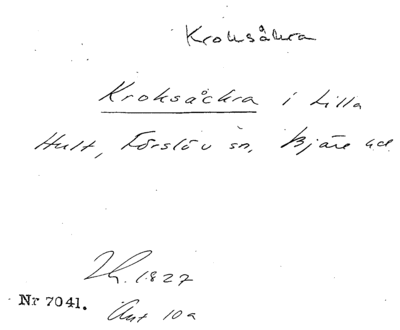 Kroksåkra
Kroksåckra i Lilla
Hult, Förslöv sn, Bjäre hd
Lh. 1827
Nr 7041.
Akt 10a